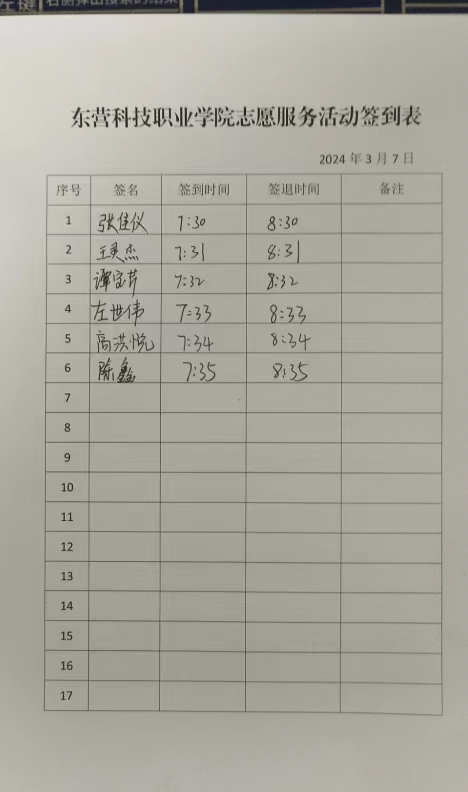 东营科技职业学院志愿服务活动签到表
2024 年 3 月 7 日
序号 签名 签到时间 签退时间 备注
1 张佳仪 7:30 8:30
2 王灵杰 7:31 8:31
3 谭宝芹 7:32 8:32
4 左世伟 7:33 8:33
5 高洪悦 7:34 8:34
6 陈鑫 7:35 8:35
7
8
9
10
11
12
13
14
15
16
17